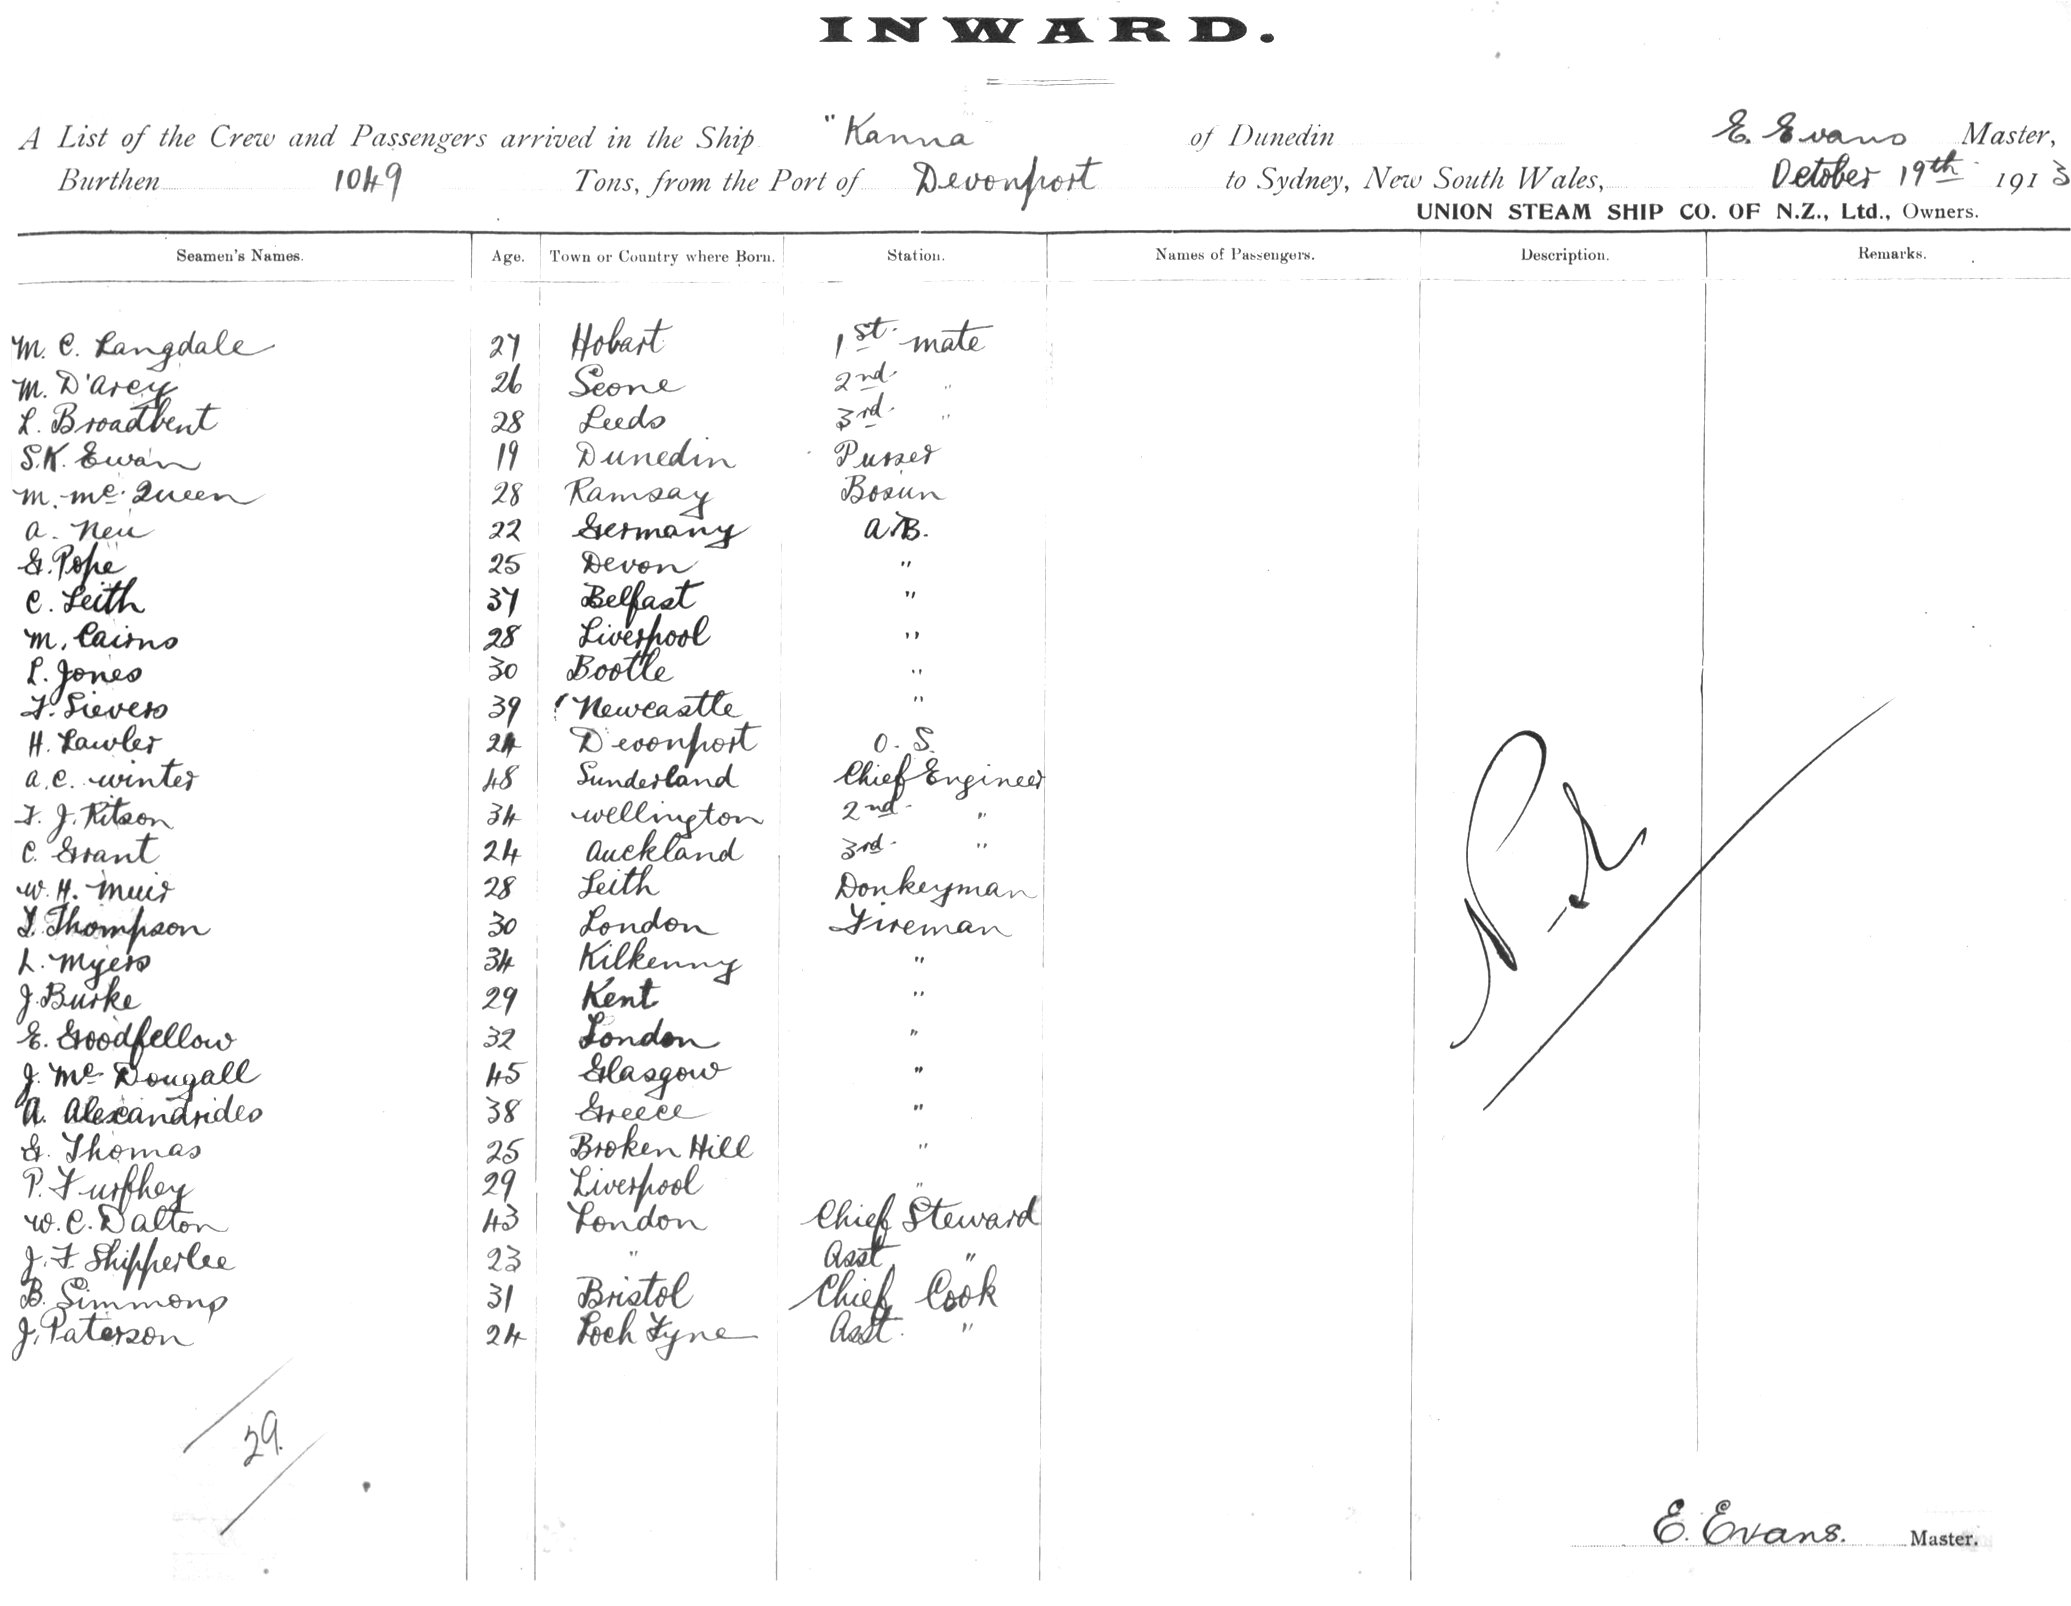 INWARD.
A List of the Crew and Passengers arrived in the Ship "Kanna of Dunedin E. Evans Master,
Burthen 1049 Tons, from the Port of Devonport to Sydney, New South Wales, October 19th 1913
UNION STEAM SHIP CO. OF N.Z., Ltd., Owners.
Seamen's Names. Age. Town or Country where Born. Station. Names of Passengers. Description. Remarks.
M. C. Langdale 27 Hobart 1st mate
M. D'Arcy 26 Scone 2nd "
L. Broadbent 28 Leeds 3rd "
S.K. Ewan 19 Dunedin Purser
M. McQueen 28 Ramsay Bosun
A. Neu 22 Germany A.B.
G. Pope 25 Devon "
C. Leith 37 Belfast "
M. Cairns 28 Liverpool "
L. Jones 30 Bootle "
F. Sievers 39 Newcastle "
H. Lawler 24 Devonport O. S.
A. C. Winter 48 Sunderland Chief Engineer
F. J. Ritson 34 Wellington 2nd "
C. Grant 24 Auckland 3rd "
W. H. Muir 28 Leith Donkeyman
Thompson 30 London Fireman
L. Myers 34 Kilkenny "
J. Burke 29 Kent "
E. Goodfellow 32 London "
J. McDougall 45 Glasgow "
A. Alexandrides 38 Greece "
G. Thomas 25 Broken Hill "
P. Furphey 29 Liverpool "
W. C. Dalton 43 London Chief Steward
J. F Shipperlee 23 " Asst "
B. Simmons 31 Bristol Chief Cook
J. Paterson 24 Loch Fyne Asst. "
29.
E. Evans. Master.